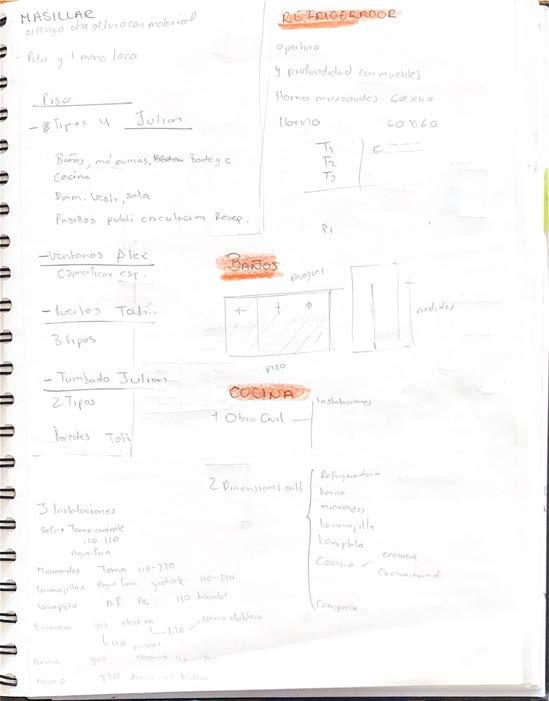 MASILLAR
si tengo otra altura con material
- Pulir y 1 mano laca
Piso
- Tipos 4 Julian
Baños, máquinas, Bodega
Cocina
Dorm. Vesti, sala
Pasillos publi circulacion Recep.
- Ventanas Alex
Especificar esp.
- Puertas Tati
3 tipos
- Tumbado Julian
2 Tipos
Paredes Tati
REFRIGERADOR
apertura
y profundidad con muebles
Horno microondas - 60x40
Horno 60x60
T1 C
T2
T3
P1
BAÑOS
piso
medidas
COCINA
1 Obra Civil
Instalaciones
2 Dimensiones
Refrigeradora
Horno
Microondas
Lavavajilla
Lavaplato
Cocina
encimera
Cocina normal
Campana
3 Instalaciones
Refri + Toma corriente
110-120
Agua fria
Microondas Toma 110-220
Lavavajillas Agua fria 110-220
Lavaplato A.F. AC 110
Encimera gas electrica
220
110
Cocina gas electrica
Horno 220